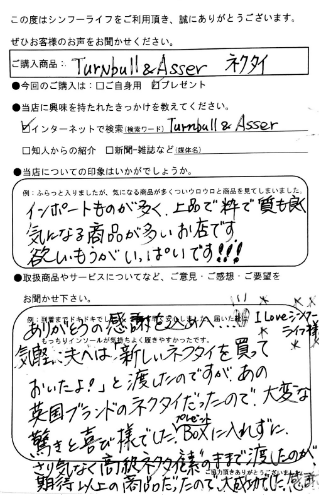 この度はシンフーライフをご利用頂き、誠にありがとうございます。
ぜひお客様のお声をお聞かせください。
ご購入商品: Turnbull & Asser ネクタイ
●今回のご購入は:□ご自身用 ☑プレゼント
●当店に興味を持たれたきっかけを教えてください。
☑インターネットで検索(検索ワード) Turnbull & Asser
□知人からの紹介 □新聞・雑誌など(媒体名)
●当店についての印象はいかがでしょうか。
例:ふらっと入りましたが、気になる商品が多くついウロウロと商品を見てしまいました。
インポートものが多く、上品で粋で質も良く
気になる商品が多いお店です
欲しいもうがいっぱいです!!!
●取扱商品やサービスについてなど、ご意見・ご感想・ご要望を
お聞かせ下さい。
ありがとうの感謝を込めて…
I Love シンフーライフ様
もっちりインソールが気持ちよく履きやすかったです。
気軽に夫へは「新しいネクタイを買って
おいたよ!」と渡したのですが、あの
英国ブランドのネクタイだったので、大変な
驚きと喜び様でした。プレゼントBOXに入れずに、
さり気なく高級ネクタイを素のままで渡したのが
ご協力頂きありがとうございました
期待以上の商品だったので、大成功でした。感謝